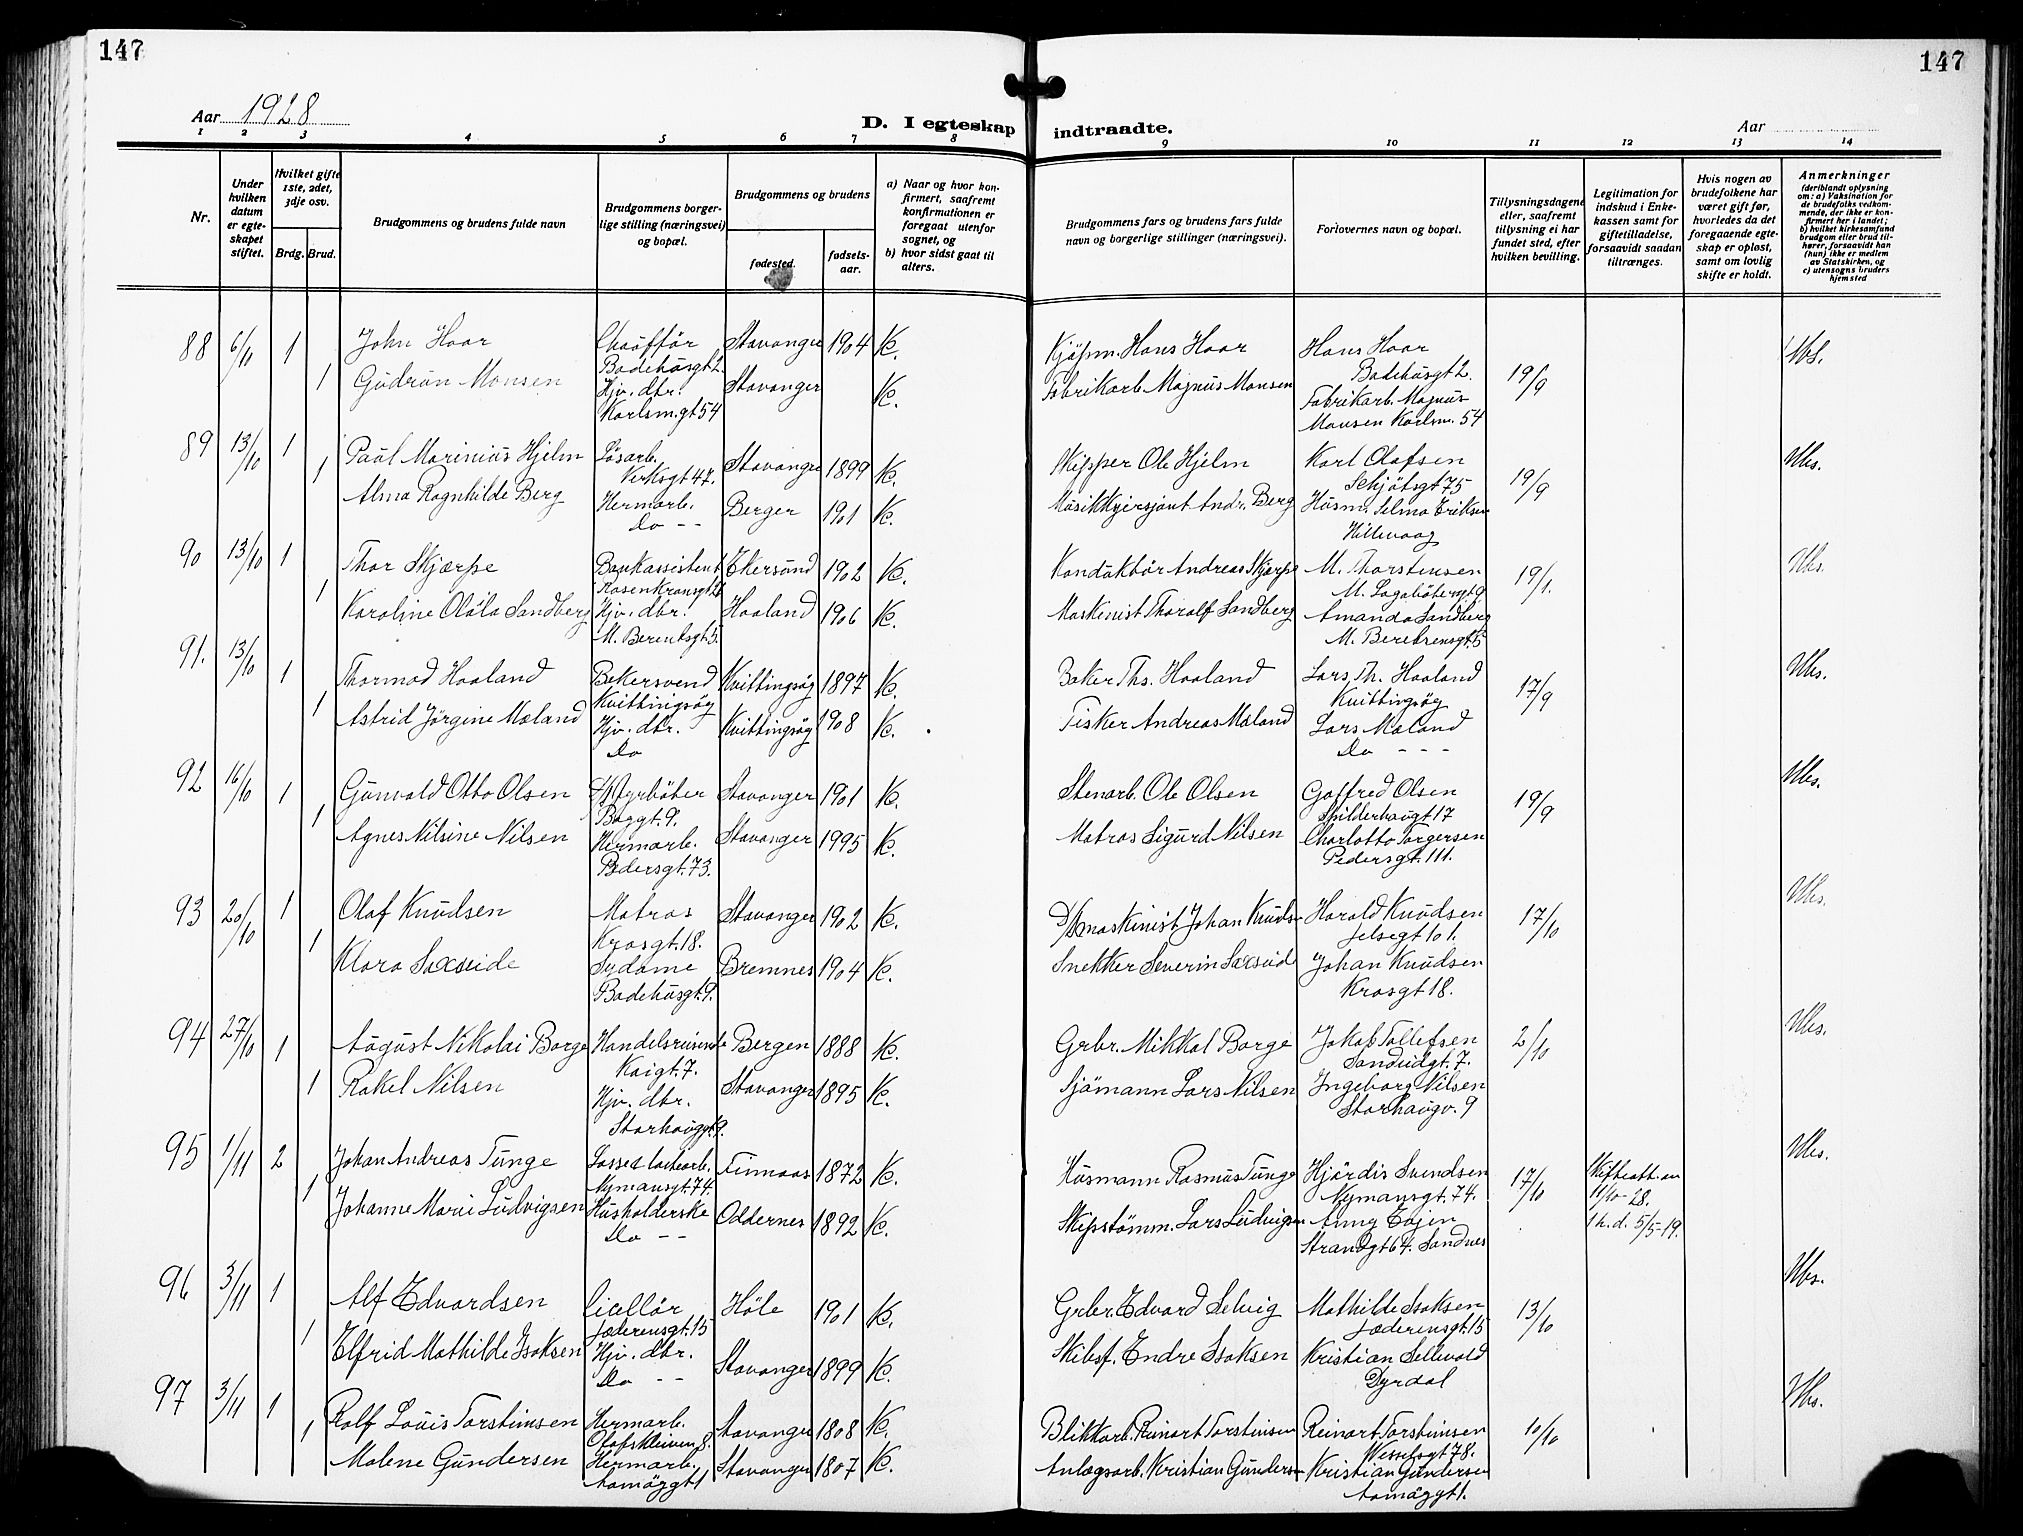 147
147
Aar 1928
D. I egteskap indtraadte.
Aar
1 2 3 4 5 6 7 8 9 10 11 12 13 14
Nr.
Under hvilken datum er egteskapet stiftet.
Hvilket gifte 1ste, 2det, 3dje osv.
Brdg. Brud.
Brudgommens og brudens fulde navn
Brudgommens borgerlige stilling (næringsvei) og bopæl.
Brudgommens og brudens
fødested.
fødselsaar.
a) Naar og hvor konfirmert, saafremt konfirmationen er foregaat utenfor sognet, og
b) hvor sidst gaat til alters.
Brudgommens fars og brudens fars fulde navn og borgerlige stillinger (næringsvei).
Forlovernes navn og bopæl.
Tillysningsdagene eller, saafremt tillysning ei har fundet sted, efter hvilken bevilling.
Legitimation for indskud i Enkekassen samt for giftetilladelse, forsaavidt saadan tiltrænges.
Hvis nogen av brudefolkene har været gift før, hvorledes da det foregaaende egteskap er opløst, samt om lovlig skifte er holdt.
Anmerkninger (deriblandt oplysning om: a) Vaksination for de brudefolks vedkommende, der ikke er konfirmert her i landet; b) hvilket kirkesamfund brudgom eller brud tilhører, forsaavidt han (hun) ikke er medlem av Statskirken, og c) utensogns bruders hjemsted
88 6/11 1 John Haar Chauffør Badehusgt 2. Stavanger 1904 K. Kjøpm. Hans Haar Hans Haar Badehusgt 2. 19/9 Vbs.
1 Gudrun Monsen Hjv. dtr. Karlsm.gt 54 Stavanger K. Fabrikarb. Magnus Monsen Fabrikarb. Magnus Monsen Karlsm. 54
89 13/10 1 Paul Marinius Hjelm Løsarb. Verksgt 47. Stavanger 1899 K. Skipper Ole Hjelm Karl Olafsen Schjøtsgt 75 19/9 Vbs.
1 Alma Ragnhilde Berg Hermarb. Do -- Berger 1901 K. Musikksersjant Andr. Berg Husm. Selma Eriksen Hillevaag
90 13/10 1 Thor Skjærpe Bankassistent Rosenkransgt Ekersund 1902 K. Konduktør Andreas Skjærpe M. Thorstensen M. Lagabøtersgt 9 19/1. Vbs.
1 Karoline Olula Sandberg Hjv. dtr. M. Berentsgt 5. Haaland 1906 K. Maskinist Thoralf Sandberg Amanda Sandberg M. Berentsensgt. 5
91. 13/10 1 Thormod Haaland Bakersvend Kvittingsøy Kvittingsøy 1897 K. Baker Ths. Haaland Lars Th. Haaland Kvittingsøy 17/9 Vbs.
1 Astrid Jørgine Mæland Hjv. dtr. Do Kvittingsøy 1908 K. Fisker Andreas Mæland Lars Mæland Do ---
92 16/10 1 Gunvald Otto Olsen D/S fyrbøter Baggt. 9. Stavanger 1901 K. Stenarb. Ole Olsen Gotfred Olsen Spilderhaugt 17 19/9 Vbs.
1 Agnes Nilsine Nilsen Hermarb. Pedersgt. 73. Stavanger 1995 K. Matros Sigurd Nilsen Charlotte Torgersen Pedersgt. 111.
93 20/10 1 Olaf Knudsen Matros Krosgt. 18. Stavanger 1902 K. D/S maskinist Johan Knuds- Harald Knudsen Jelsegt 101. 17/10 Vbs.
1 Klara Saxeide Sydame Badehusgt. 9. Bremnes 1904 K. Snekker Severin Saxeid Johan Knudsen Krosgt 18.
94 27/10 1 August Nikolai Borge Handelsreisende Kaigt. 7. Bergen 1888 K. Grbr. Mikkal Borge Jakob Tollefsen Sandeidgt. 7. 2/10 Vbs.
1 Rakel Nilsen Hjv. dtr. Storhauggt. 9. Stavanger 1895 K. Sjømann Lars Nilsen Ingeborg Nilsen Storhaugv. 9
95 1/11 2 Johan Andreas Tunge Losse & lastearb. Nymansgt. 74. Finnaas 1872 K. Husmann Rasmus Tunge Hjørdis Svendsen Nymansgt. 74. 17/10 Skifteatt. av 11/10-28. Vbs.
1 Johanne Marie Ludvigsen Husholderske Do -- Oddernes 1892 K. Skipstømm. Lars Ludvigsen Anny Eojen Strandgt 64. Sandnes 1 h.d. 5/5-19.
96 3/11 1 Alf Edvardsen Cicellør Jæderensgt. 15 Høle 1901 K. Grbr. Edvard Selvig Mathilde Isaksen Jæderensgt. 15 13/10 Vbs.
1 Elfrid Mathilde Isaksen Hjv. dtr. Do -- Stavanger 1899 K. Skibsf. Endre Isaksen Kristian Sellevold Dyrdal
97 3/11 1 Rolf Louis Torsteinsen Hermarb. Olafskleiven 8. Stavanger 1808 K. Blikkarb. Reinart Torsteinsen Reinart Torsteinsen Wesselsgt 78. 10/10 Vbs.
1 Malene Gundersen Hermarb. Aamøygt 1 Stavanger 1807 K. Anlægsarb. Kristian Gundersen Kristian Gundersen Aamøygt 1.